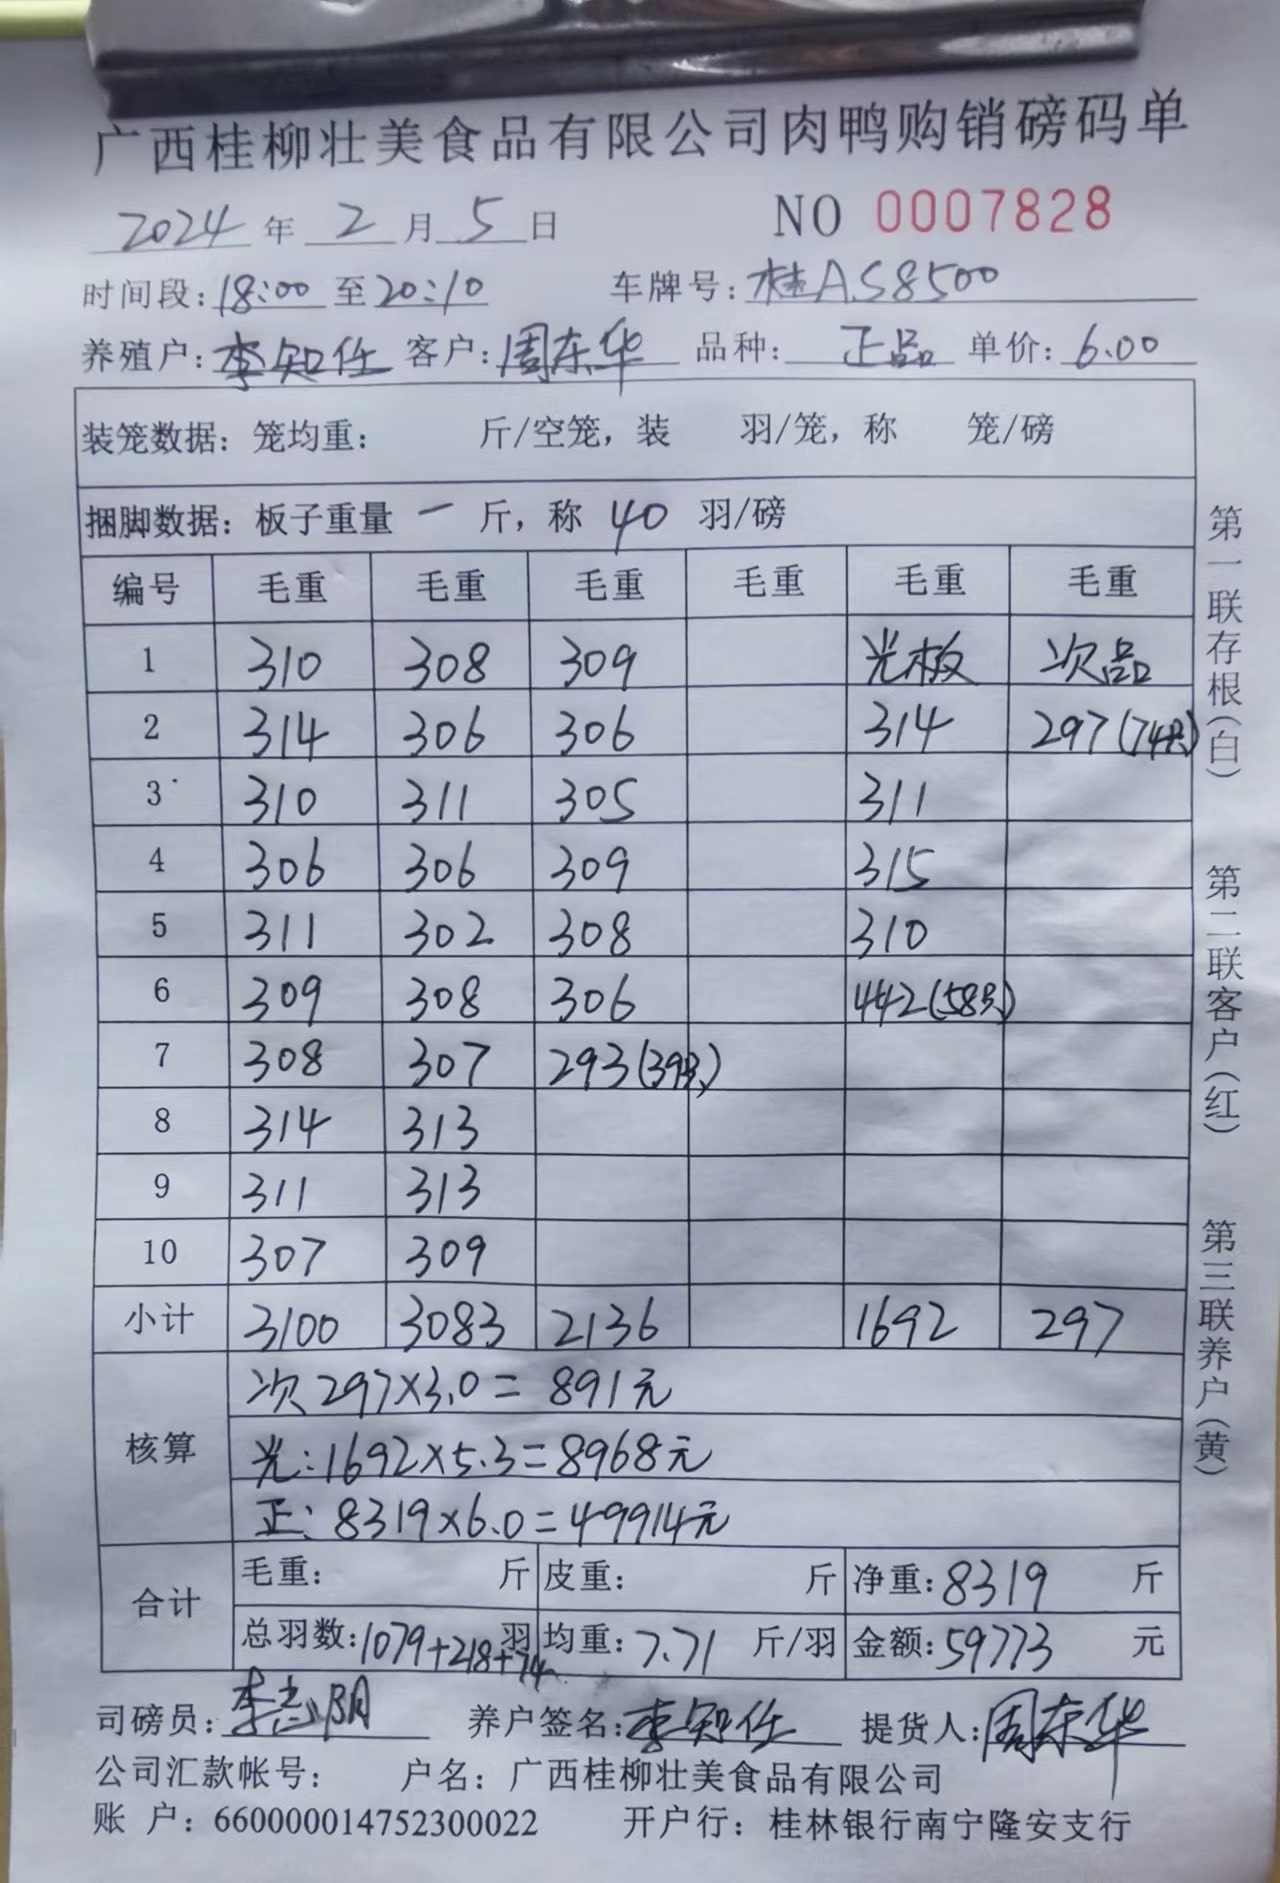 广西桂柳壮美食品有限公司肉鸭购销磅码单
2024年2月5日 NO 0007828
时间段:18:00至20:10 车牌号:桂A.S8500
养殖户:李知任 客户:周东华 品种:正品 单价:6.00
装笼数据:笼均重: 斤/空笼,装 羽/笼,称 笼/磅
捆脚数据:板子重量 一 斤,称 40 羽/磅
编号 毛重 毛重 毛重 毛重 毛重 毛重
1 310 308 309 光板 次品
2 314 306 306 314 297(74只)
3 310 311 305 311
4 306 306 309 315
5 311 302 308 310
6 309 308 306 442(58只)
7 308 307 293(39只)
8 314 313
9 311 313
10 307 309
小计 3100 3083 2136 1692 297
核算
次 297×3.0=891元
光:1692×5.3=8968元
正:8319×6.0=49914元
合计
毛重: 斤 皮重: 斤 净重:8319 斤
总羽数:1079+218+74羽 均重:7.71 斤/羽 金额:59773 元
司磅员:李志明 养户签名:李知任 提货人:周东华
公司汇款帐号: 户名:广西桂柳壮美食品有限公司
账 户:660000014752300022 开户行:桂林银行南宁隆安支行
第一联存根(白)
第二联客户(红)
第三联养户(黄)